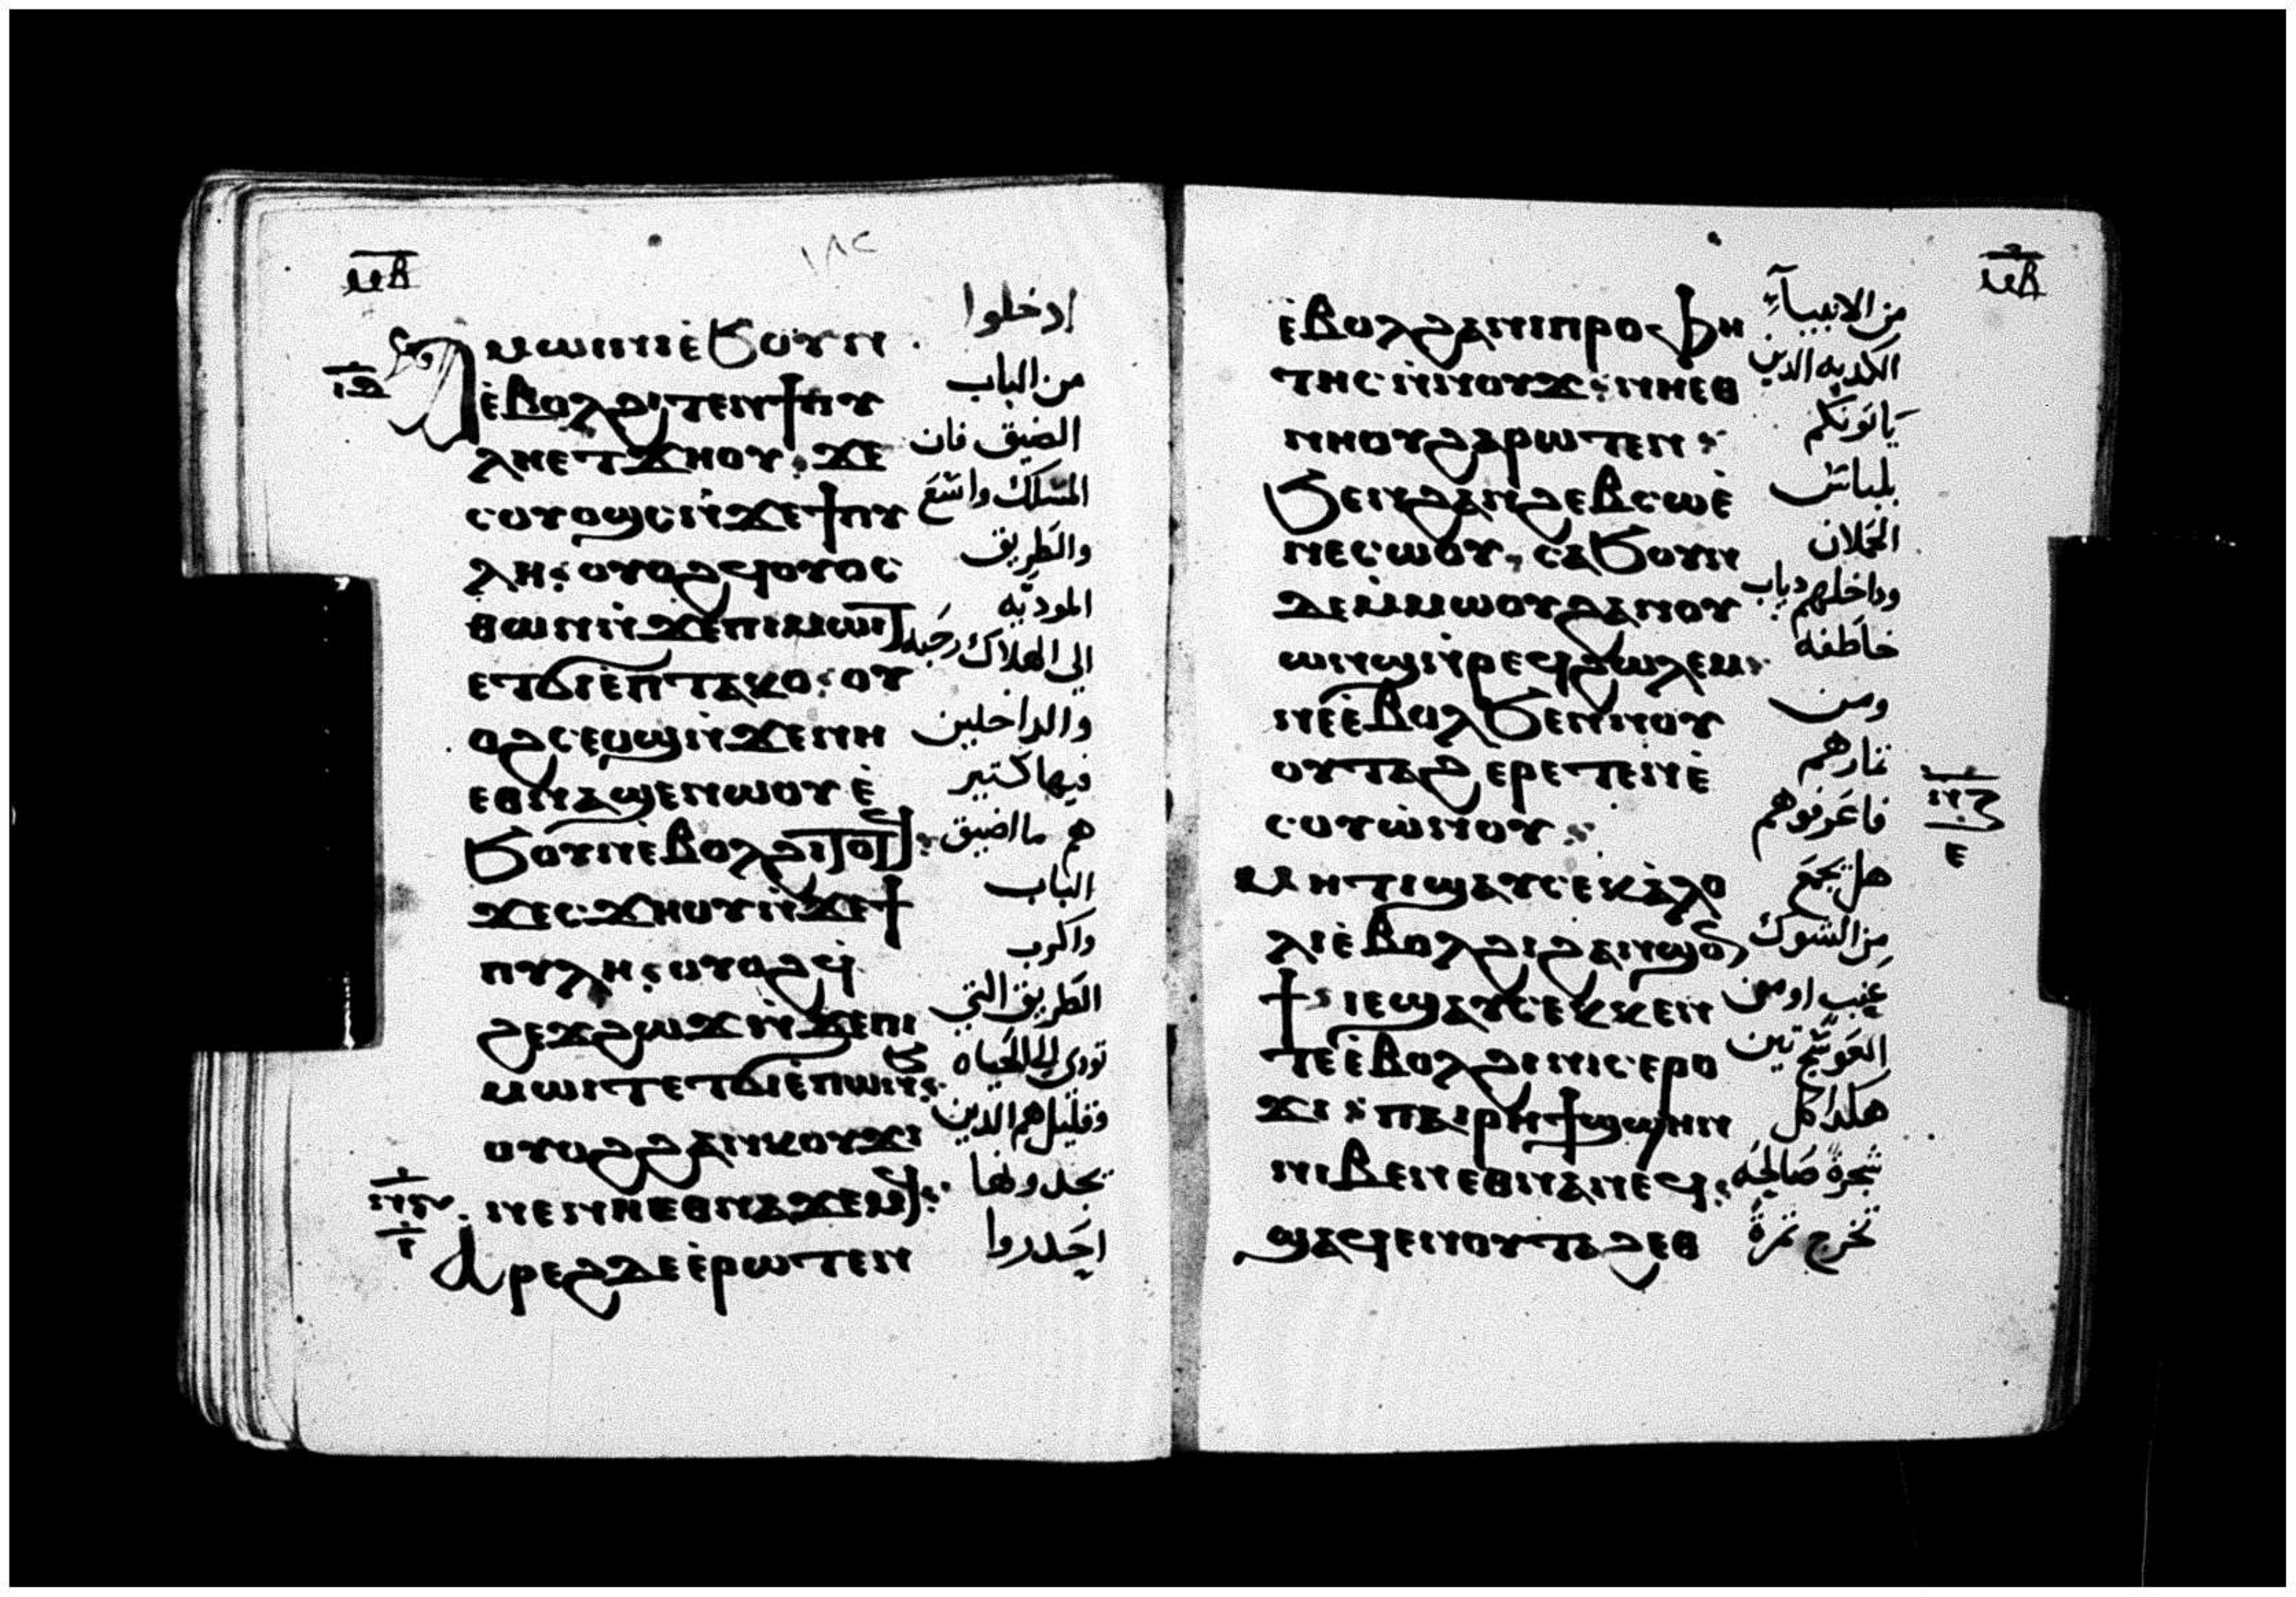 ⲙⲃ
١٨٢
Ⲁⲙⲱⲓⲛⲓⲉ̀ϧⲟⲩⲛ
ⲉ̀ⲃⲟⲗϩⲓⲧⲉⲛϯⲡⲩ
ⲗⲏⲉⲧϫⲏⲟⲩ : ϫⲉ
ⲥⲟⲩⲟϣⲥⲛ̀ϫⲉϯⲡⲩ
ⲗⲏ : ⲟⲩⲟϩϥⲟⲩⲟⲥ
ⲑⲱⲛⲛ̀ϫⲉⲡⲓⲙⲱⲓⲧ
ⲉⲧϭⲓⲉ̀ⲡⲧⲁⲕⲟ : ⲟⲩ
ⲟϩⲥⲉⲟϣⲛ̀ϫⲉⲛⲏ
ⲉⲑⲛⲁϣⲉⲛⲱⲟⲩⲉ̀
ϧⲟⲩⲛⲉ̀ⲃⲟⲗϩⲓⲧⲟⲧϥ :
ϫⲉⲥϫⲏⲟⲩⲛ̀ϫⲉϯ
ⲡⲩⲗⲏ : ⲟⲩⲟϩϥ̀
ϩⲉϫϩⲱϫⲛ̀ϫⲉⲡⲓ
ⲙⲱⲓⲧⲉⲧϭⲓⲉ̀ⲡⲱⲛϧ :
ⲟⲩⲟϩϩⲁⲛⲕⲟⲩϫⲓ
ⲛⲉⲛⲏⲉⲑⲛⲁϫⲉⲙϥ :
Ⲁⲣⲉϩⲇⲉⲉ̀ⲣⲱⲧⲉⲛ
ادخلوا
من الباب
الضيق فان
المسلك واسع
والطريق
الموديه
الى الهلاك رحبه
والداخلين
فيها كتير
هم ما اضيق
الباب
واكرب
الطريق التي
تودي الى الحياه
وقليل هم الدين
يجدونها
احدروا
ⲙⲃ
ⲉ̀ⲃⲟⲗϩⲁⲛⲓⲡⲣⲟⲫⲏ
ⲧⲏⲥⲛ̀ⲛⲟⲩϫ : ⲛⲏⲉⲑ
ⲛⲏⲟⲩϩⲁⲣⲱⲧⲉⲛ :
ϧⲉⲛϩⲁⲛϩⲉⲃⲥⲱⲉ̀
ⲛⲉⲥⲱⲟⲩ, ⲥⲁϧⲟⲩⲛ
ⲇⲉⲙ̀ⲙⲱⲟⲩϩⲁⲛⲟⲩ
ⲱⲛϣⲛ̀ⲣⲉϥϩⲱⲗⲉⲙ :
ⲛⲉⲉ̀ⲃⲟⲗϧⲉⲛⲛⲟⲩ
ⲟⲩⲧⲁϩ ⲉⲣⲉⲧⲉⲛⲉ̀
ⲥⲟⲩⲱ̀ⲛⲟⲩ :
ⲙⲏⲧⲓϣⲁⲩⲥⲉⲕⲁ̀ⲗⲟ
ⲗⲓⲉ̀ⲃⲟⲗϩⲓϩⲁⲛϣⲟⲛ
ϯ : ⲓⲉϣⲁⲩⲥⲉⲕⲕⲉⲛ
ⲧⲉⲉ̀ⲃⲟⲗϩⲓⲛⲓⲥⲉⲣⲟ
ϫⲓ : ⲡⲁⲓⲣⲏϯϣϣⲏⲛ
ⲛⲓⲃⲉⲛⲉⲑⲛⲁⲛⲉϥ :
ϣⲁϥⲉⲛⲟⲩⲧⲁϩⲉⲑ
من الانبيآء
الكدبه الدين
ياتونكم
بلباس
الحملان
وداخلهم دياب
خاطفه
ومن
تمارهم
فاعرفوهم
هل يجمع
من الشوك
عنب او من
العوسج تين
هكدا كل
شجرة صالحه
تخرج تمرة